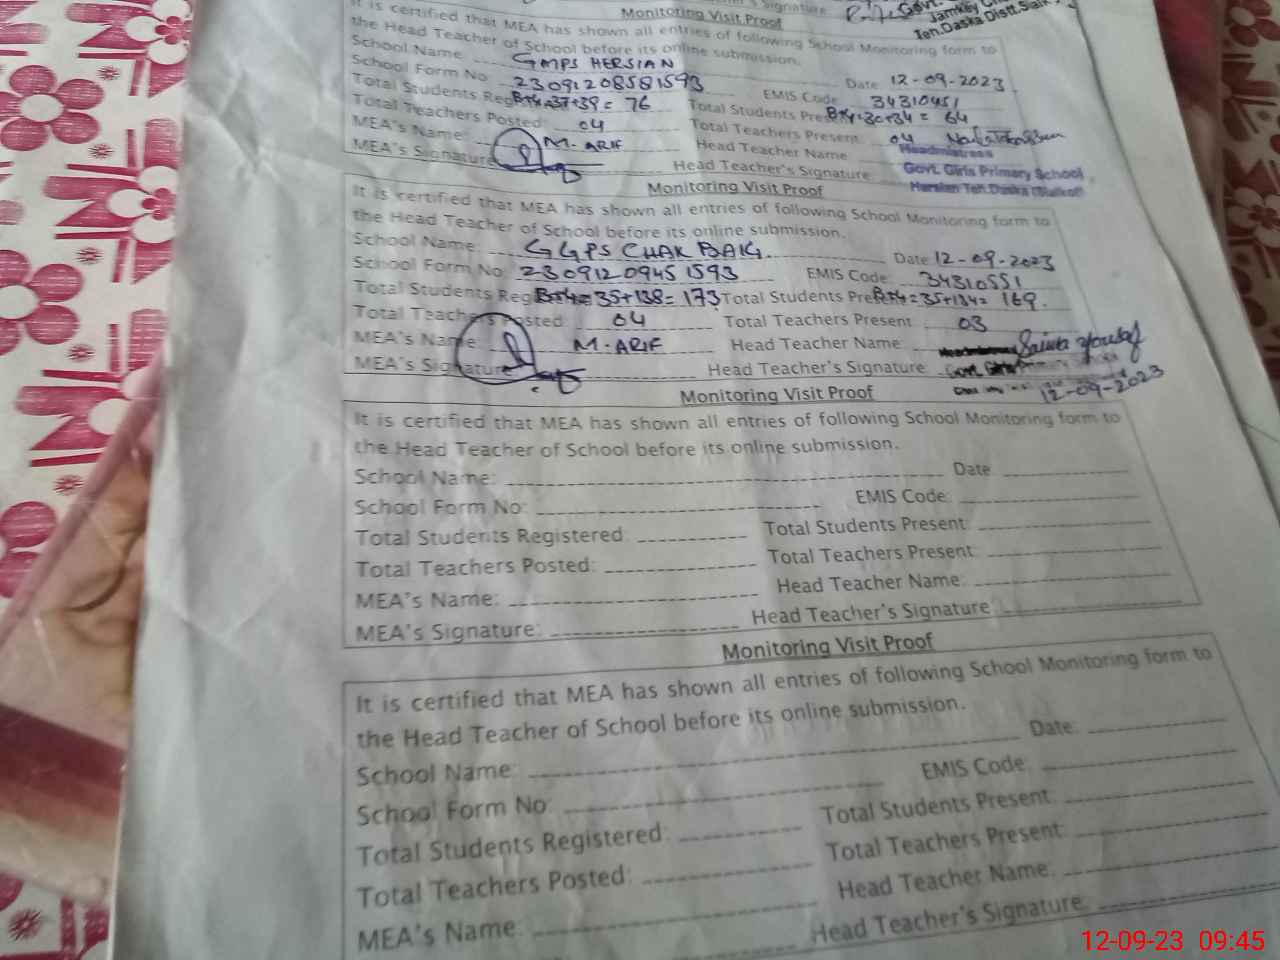 Signature Govt.
Jamkey
Teh.Daska Distt.Sialk
Monitoring Visit Proof
It is certified that MEA has shown all entries of following School Monitoring form to
the Head Teacher of School before its online submission.
School Name GMPS HERSIAN Date 12-09-2023
School Form No 23091208581593 EMIS Code 34310451
Total Students Reg B+4=37+39= 76 Total Students Pre B+4=30+34= 64
Total Teachers Posted: 04 Total Teachers Present 04
MEA's Name: M. ARIF Head Teacher Name
MEA's Signature Head Teacher's Signature
Headmistress
Govt. Girls Primary School
Hersian Teh.Daska (Sialkot)
Monitoring Visit Proof
It is certified that MEA has shown all entries of following School Monitoring form to
the Head Teacher of School before its online submission.
School Name: GGPS CHAK BAIG. Date 12-09-2023
School Form No: 2309120945 1593 EMIS Code 34310551
Total Students Reg B+4=35+138= 173 Total Students Pre B+4=35+134= 169.
Total Teachers Posted: 04 Total Teachers Present 03
MEA's Name: M. ARIF Head Teacher Name:
MEA's Signature Head Teacher's Signature
12-09-2023
Monitoring Visit Proof
It is certified that MEA has shown all entries of following School Monitoring form to
the Head Teacher of School before its online submission.
School Name: Date
School Form No: EMIS Code:
Total Students Registered: Total Students Present:
Total Teachers Posted: Total Teachers Present:
MEA's Name: Head Teacher Name:
MEA's Signature: Head Teacher's Signature:
Monitoring Visit Proof
It is certified that MEA has shown all entries of following School Monitoring form to
the Head Teacher of School before its online submission.
School Name: Date:
School Form No: EMIS Code:
Total Students Registered: Total Students Present:
Total Teachers Posted: Total Teachers Present:
MEA's Name: Head Teacher Name:
Head Teacher's Signature:
12-09-23 09:45